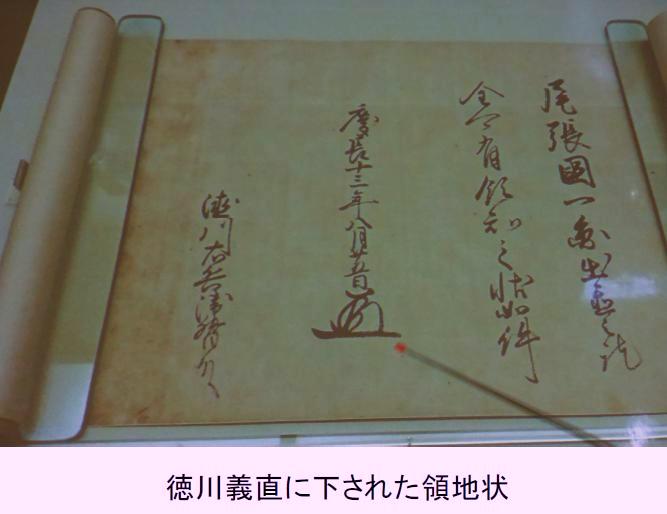 尾張國一圓出置之訖
全可有領知之状如件
慶長十三年八月廿五日
徳川右兵衛督
徳川義直に下された領地状